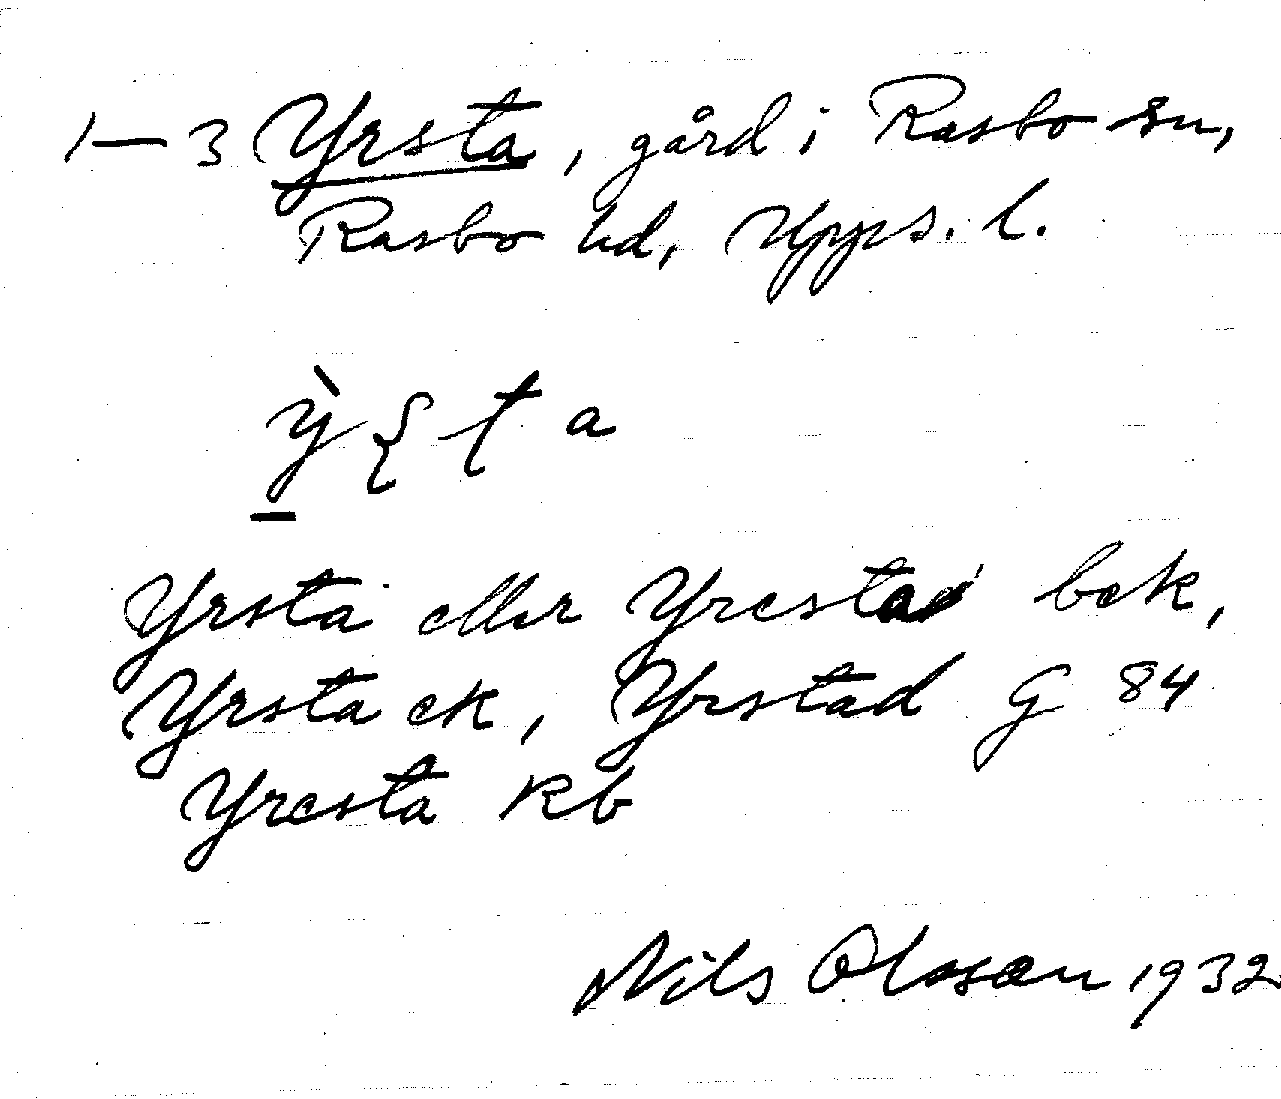 1–3 Yrsta, gård i Rasbo sn,
Rasbo hd, Upps. l.
ỳʃta
Yrsta eller Yrestad bek,
Yrsta ek, Yrstad G 84
Yresta kb
Nils Olsson 1932